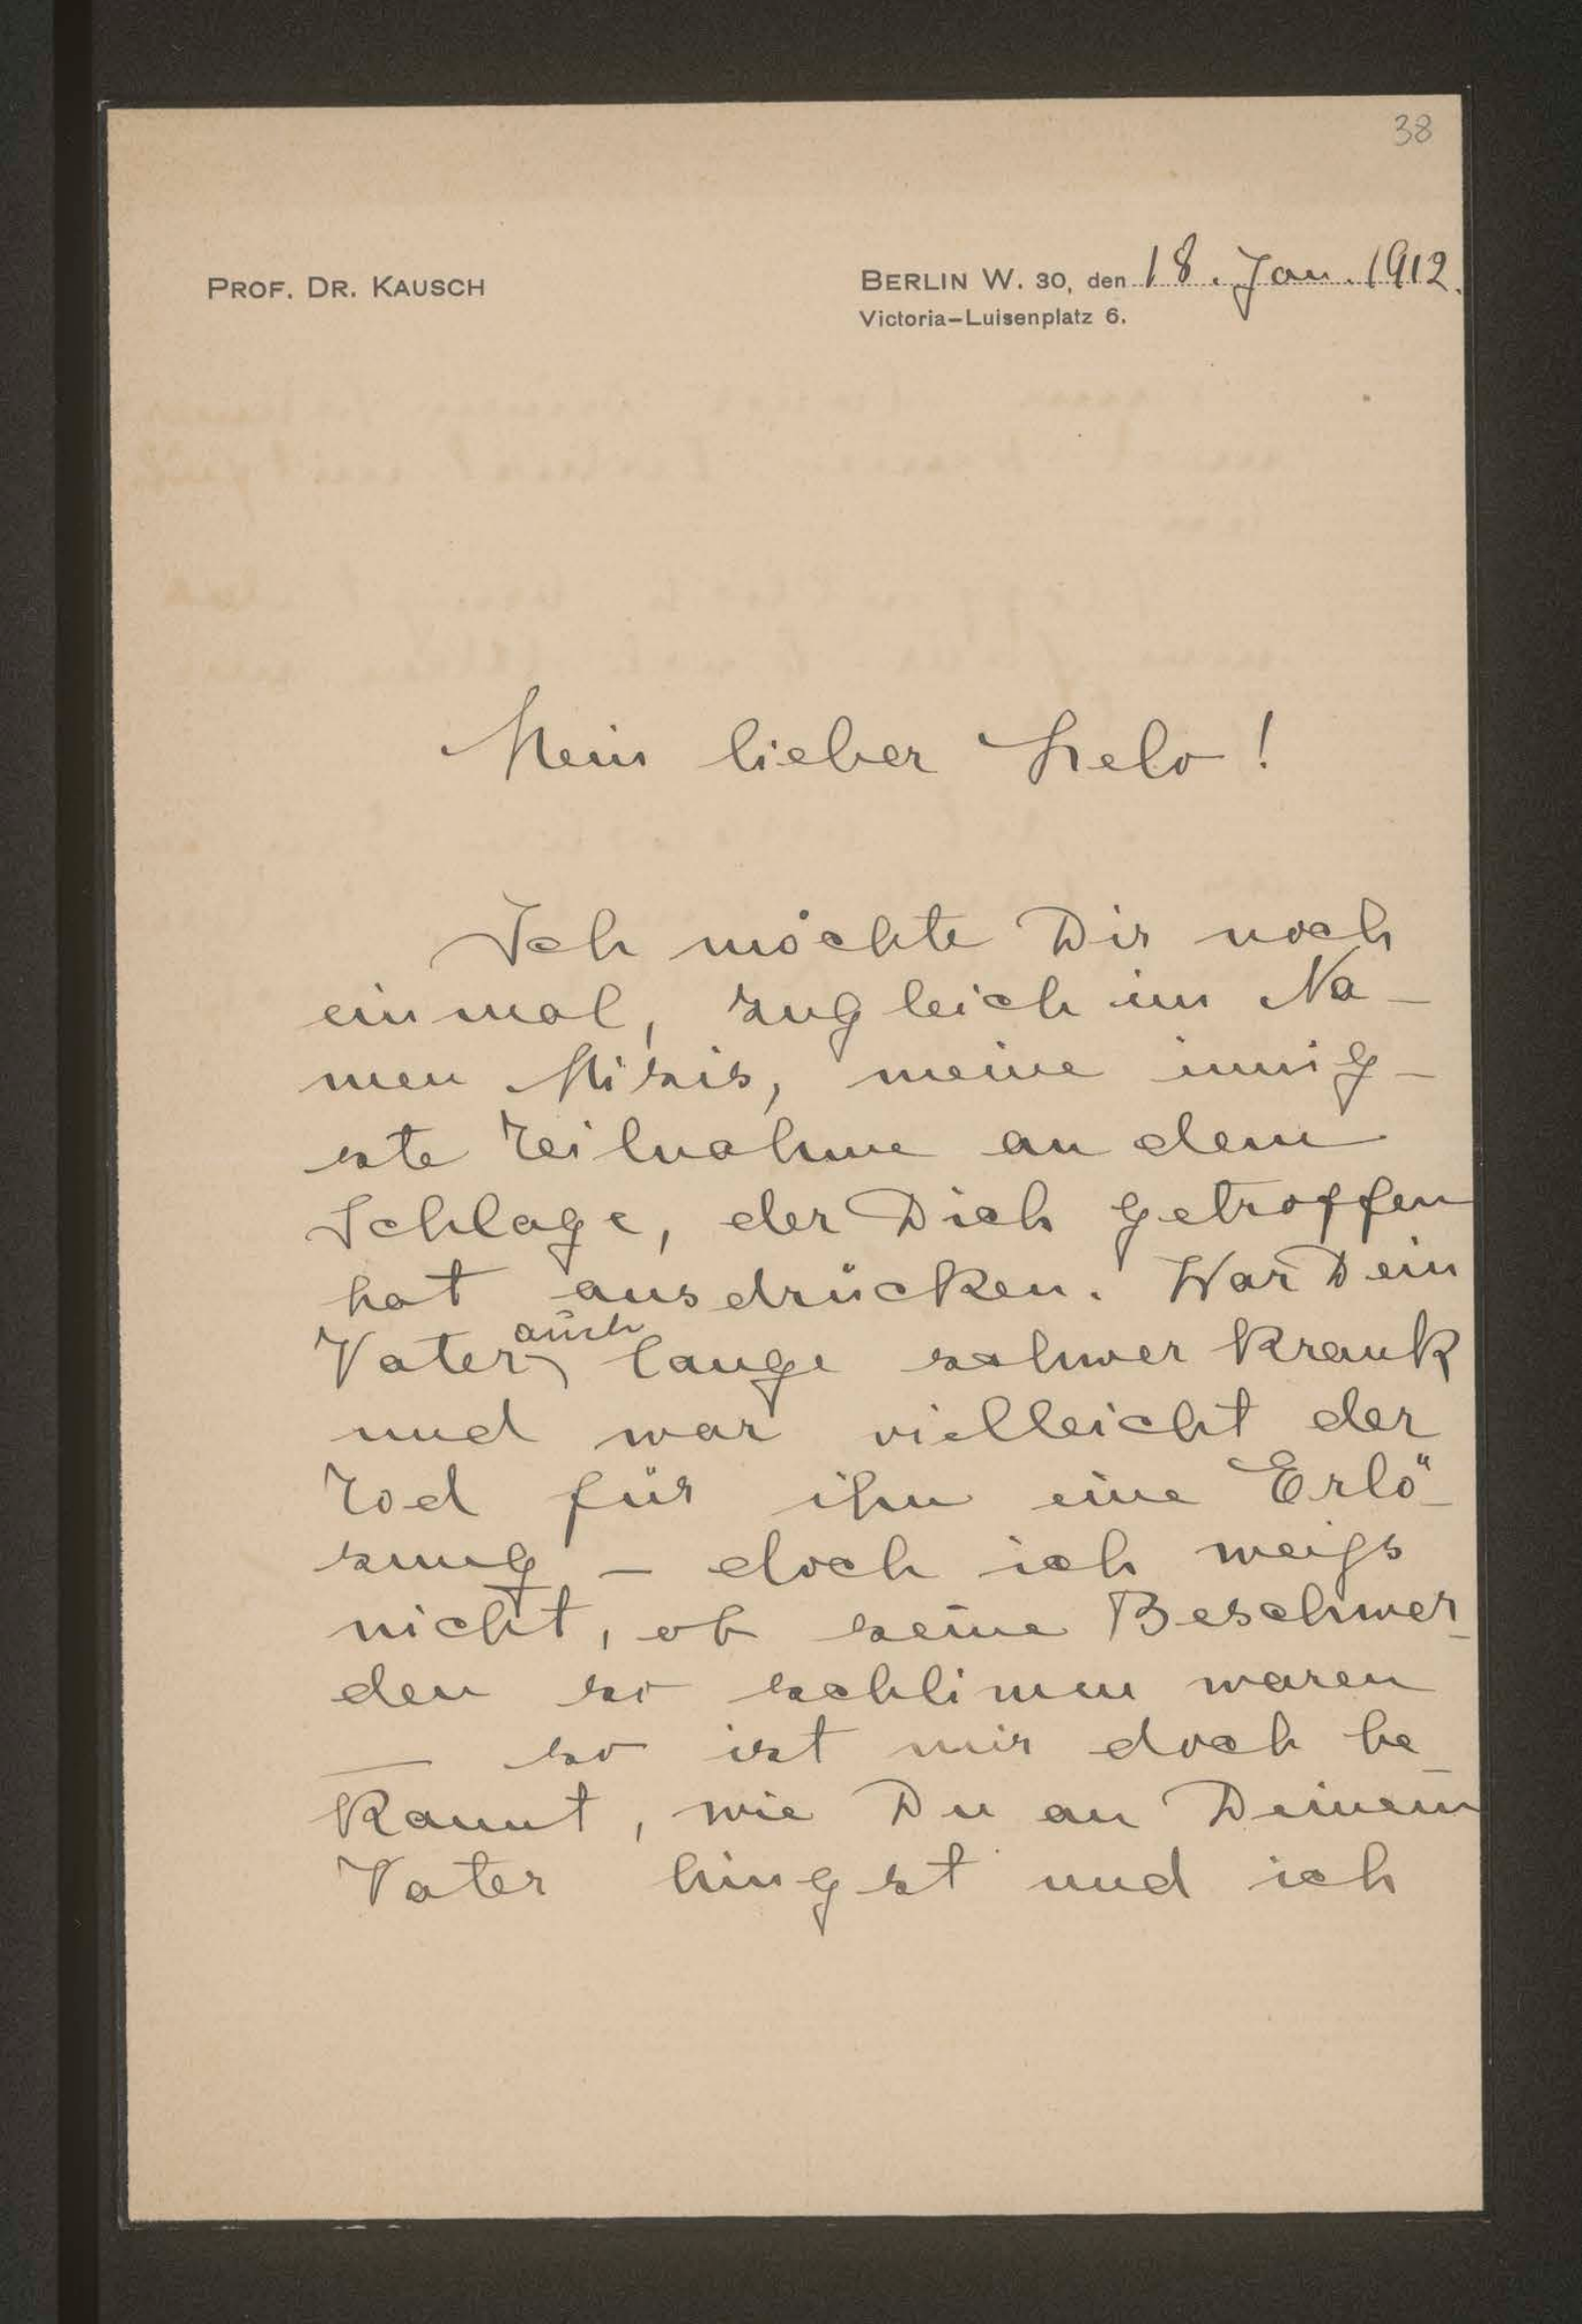 38
PROF. DR. KAUSCH
BERLIN W. 30, den 18. Jan. 1912.
Victoria-Luisenplatz 6.
Mein lieber Helo!
Ich möchte Dir noch
einmal, zugleich im Na-
men Mizis, meine innig-
ste Teilnahme an dem
Schlage, der Dich getroffen
hat ausdrücken. War Dein
Vater auch lange schwer krank
und war vielleicht der
Tod für ihn eine Erlö-
sung – doch ich weiss
nicht, ob seine Beschwer-
den so schlimm waren
– so ist mir doch be-
kannt, wie Du an Deinem
Vater hingst und ich